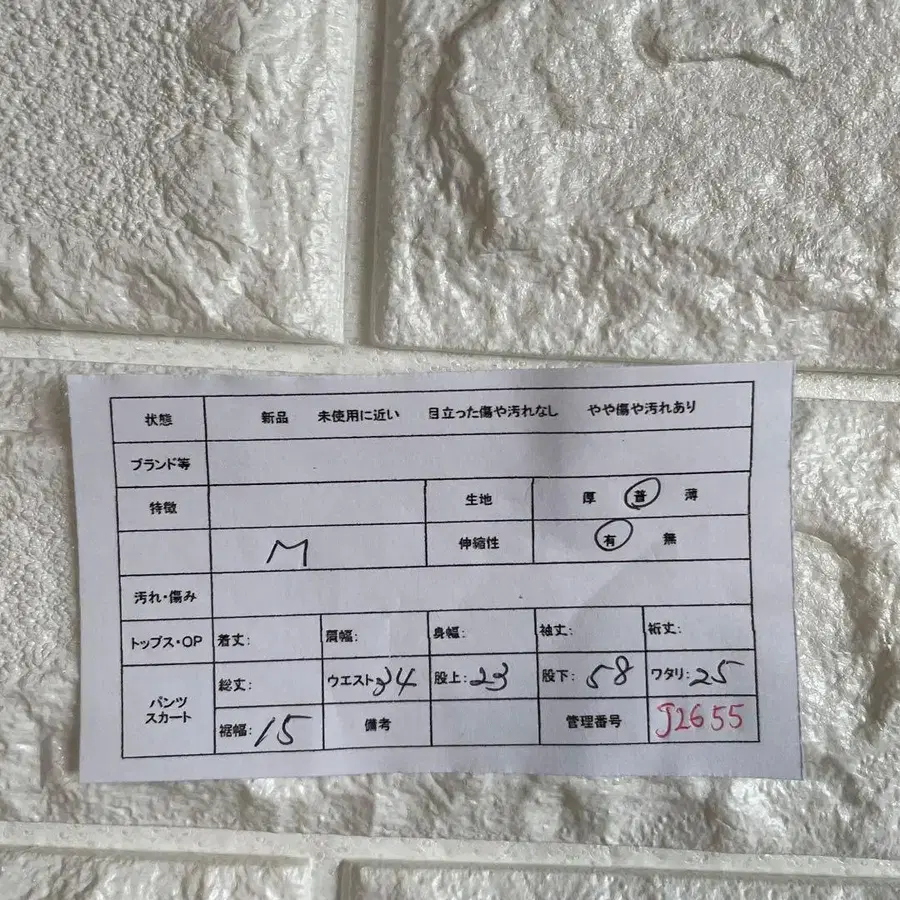 状態 新品 未使用に近い 目立った傷や汚れなし やや傷や汚れあり
ブランド等
特徴 生地 厚 普 薄
M 伸縮性 有 無
汚れ・傷み
トップス・OP 着丈: 肩幅: 身幅: 袖丈: 裄丈:
パンツ スカート 総丈: ウエスト: 34 股上: 23 股下: 58 ワタリ: 25
裾幅: 15 備考 管理番号 J2655